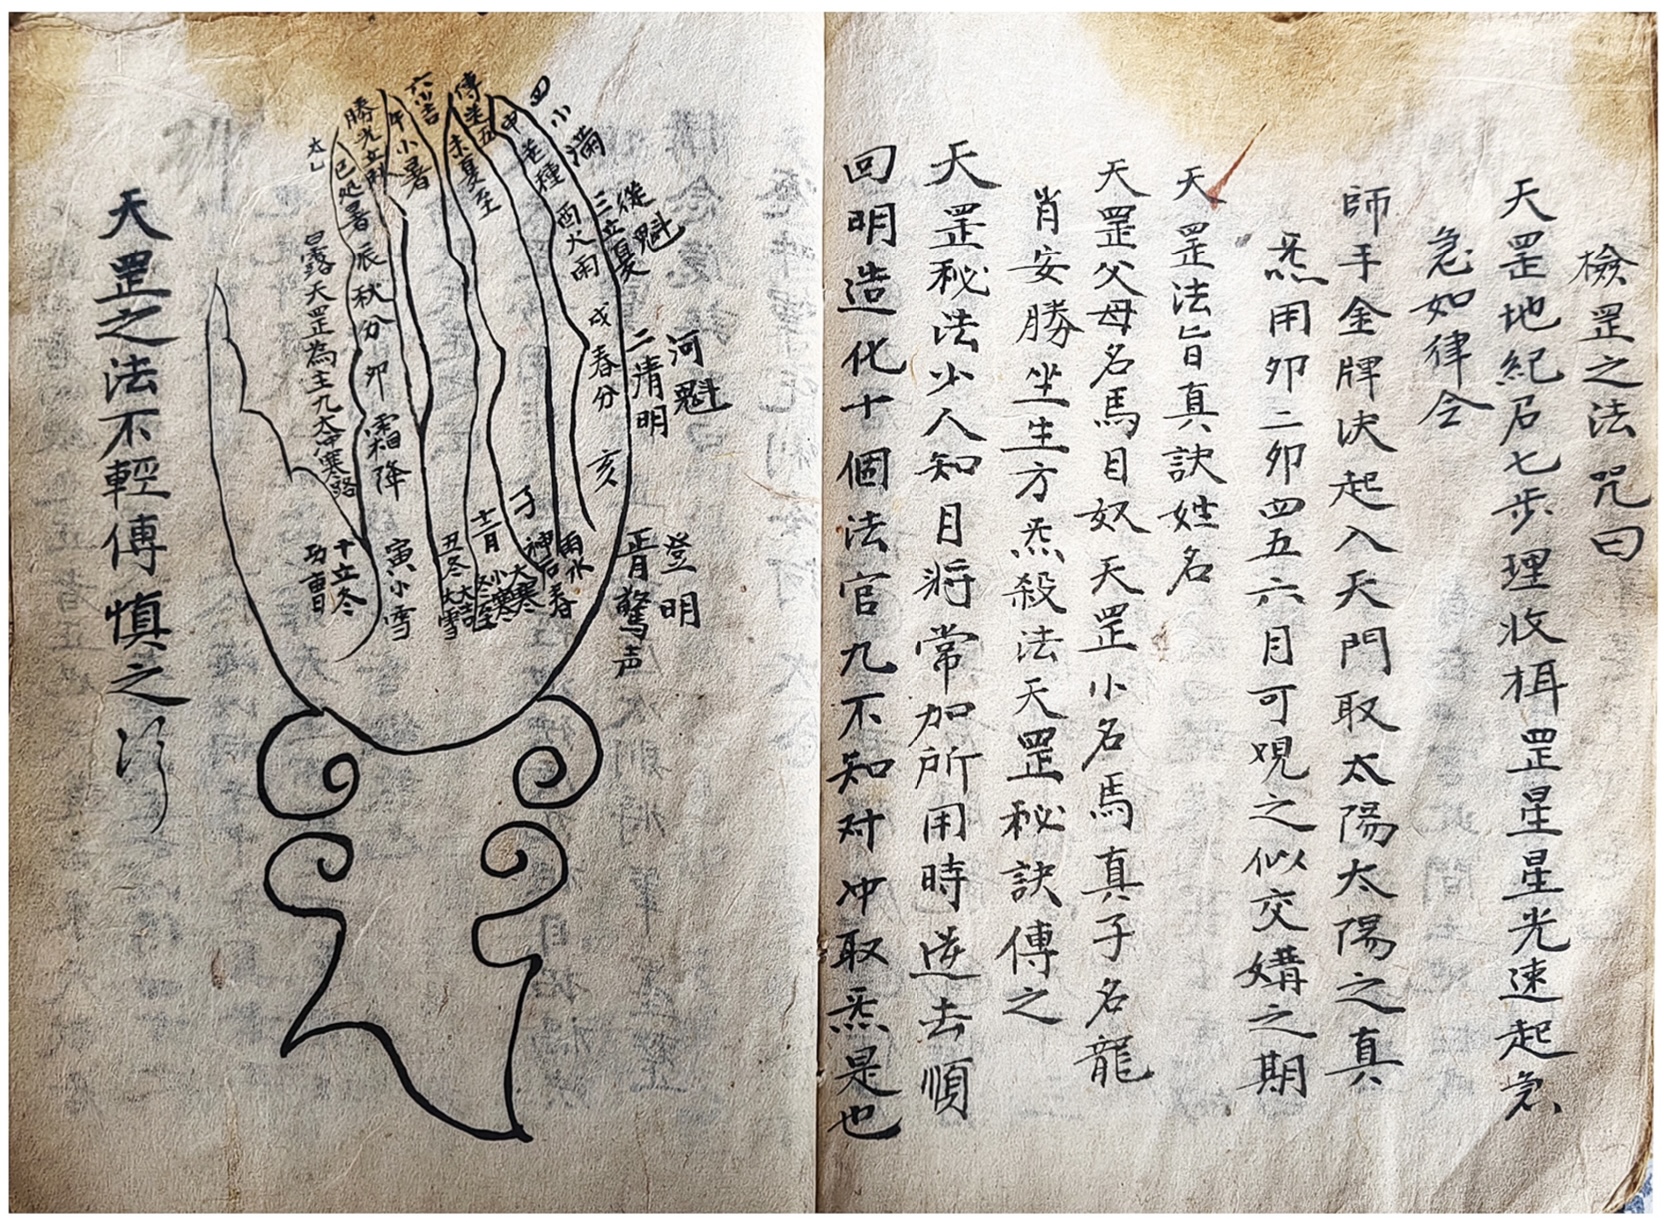 檢罡之法咒曰
天罡地紀后七步理收楫罡星星光速起急
急如律令
師手金牌決起入天門取太陽太陽之真
炁用卯二卯四五六月可晛之似交媾之期
天罡法旨真訣姓名
天罡父母名馬目奴天罡小名馬真子名龍
肖安勝坐生方炁殺法天罡秘訣傳之
天罡秘法少人知月將常加所用時逆去順
回明造化十個法官九不知对冲取炁是也
登明
正月驚声
河魁
二清明
從魁
三立夏
四小滿
傳送五
六小吉
勝光立秋
太乙
申芒種
酉大雨
戌春分
亥
未夏至
午小暑
巳処暑
辰秋分
卯霜降
寅小雪
白露天罡為主九大冲寒路
十立冬
功曹
丑冬大雪
十二月
冬至大吉
小寒
子
大寒
神后春
雨水
天罡之法不輕傳慎之